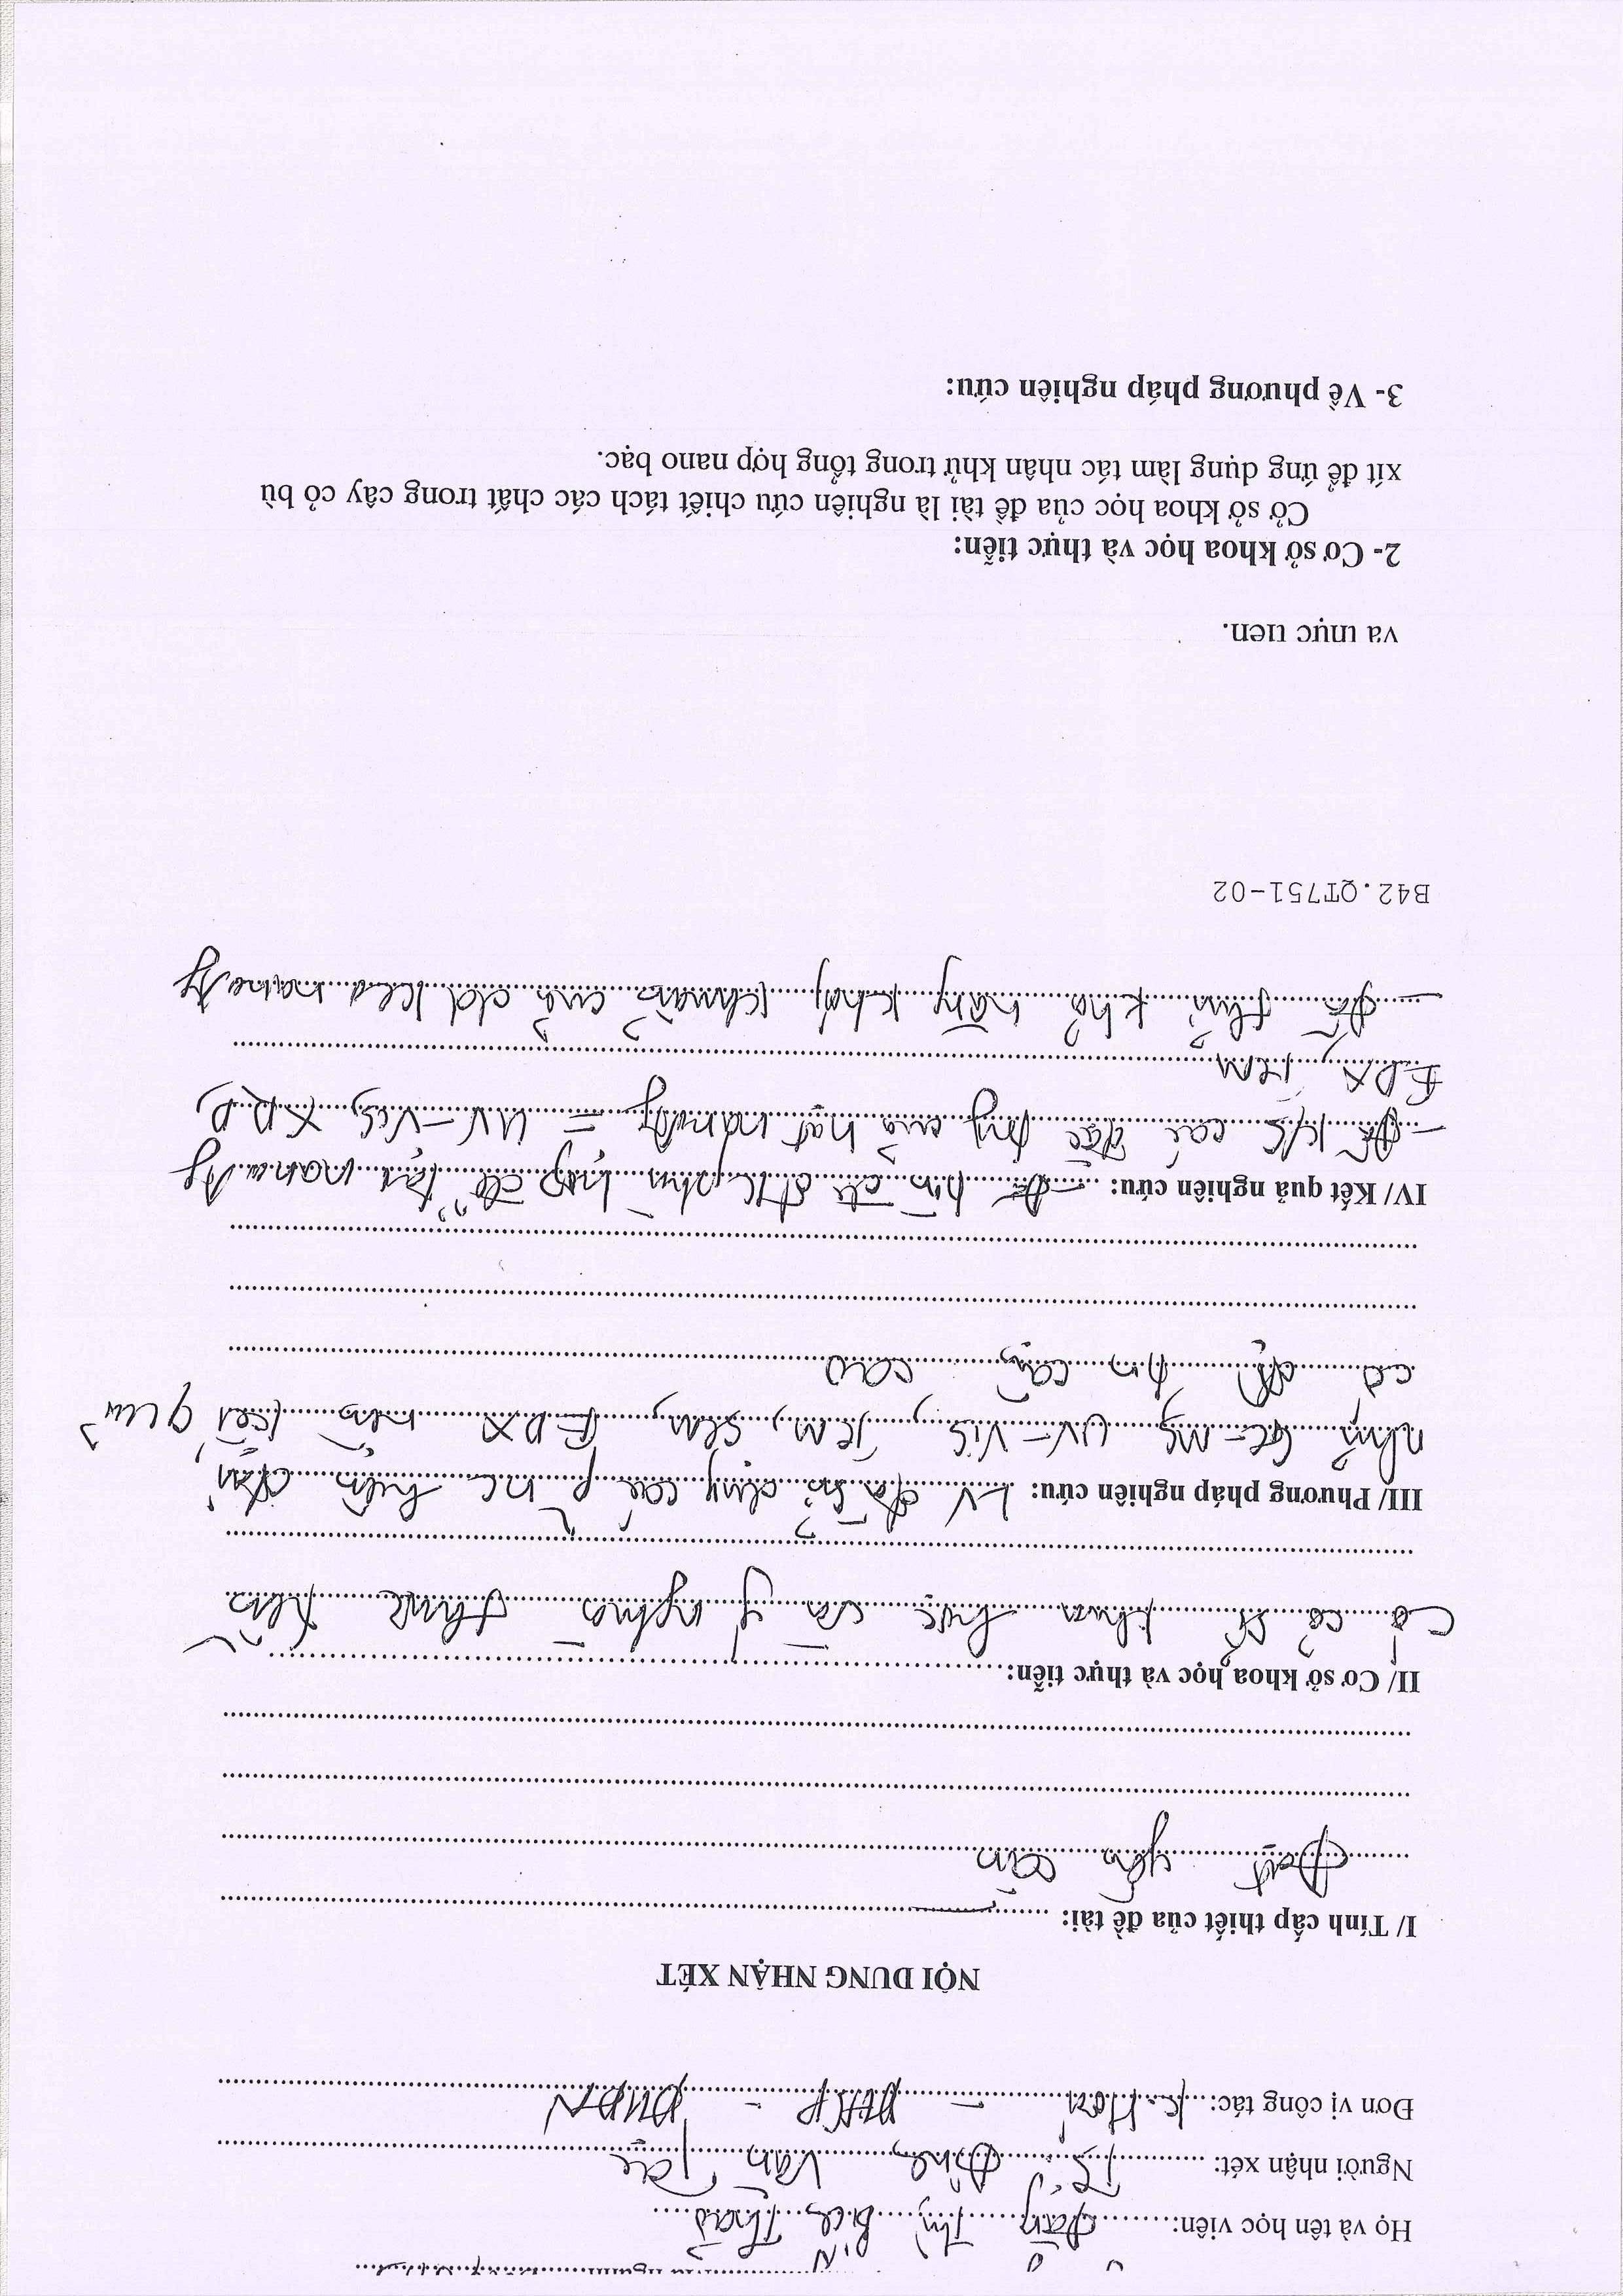 Họ và tên học viên: Đặng Thị Bích Thảo
Người nhận xét: TS. Đinh Văn Tạc
Đơn vị công tác: K. Hoá - ĐHSP - ĐHĐN
NỘI DUNG NHẬN XÉT
I/ Tính cấp thiết của đề tài:
Đạt yêu cầu
II/ Cơ sở khoa học và thực tiễn:
Có cơ sở khoa học và ý nghĩa thực tiễn
III/ Phương pháp nghiên cứu: LV đã sử dụng các p NC hiện đại
như GC-MS UV-Vis, TEM, SEM, EDX nên kết quả
có độ tin cậy cao
IV/ Kết quả nghiên cứu: - Đã
- Đã k/s các đặc của hạt nano Ag = UV-Vis, XRD,
EDX, TEM
- Đã thử khả năng kháng khuẩn của keo nano Ag
B42.QT751-02
va mục tiên.
2- Cơ sở khoa học và thực tiễn:
Cở sở khoa học của đề tài là nghiên cứu chiết tách các chất trong cây cỏ bù
xít để ứng dụng làm tác nhân khử trong tổng hợp nano bạc.
3- Về phương pháp nghiên cứu: